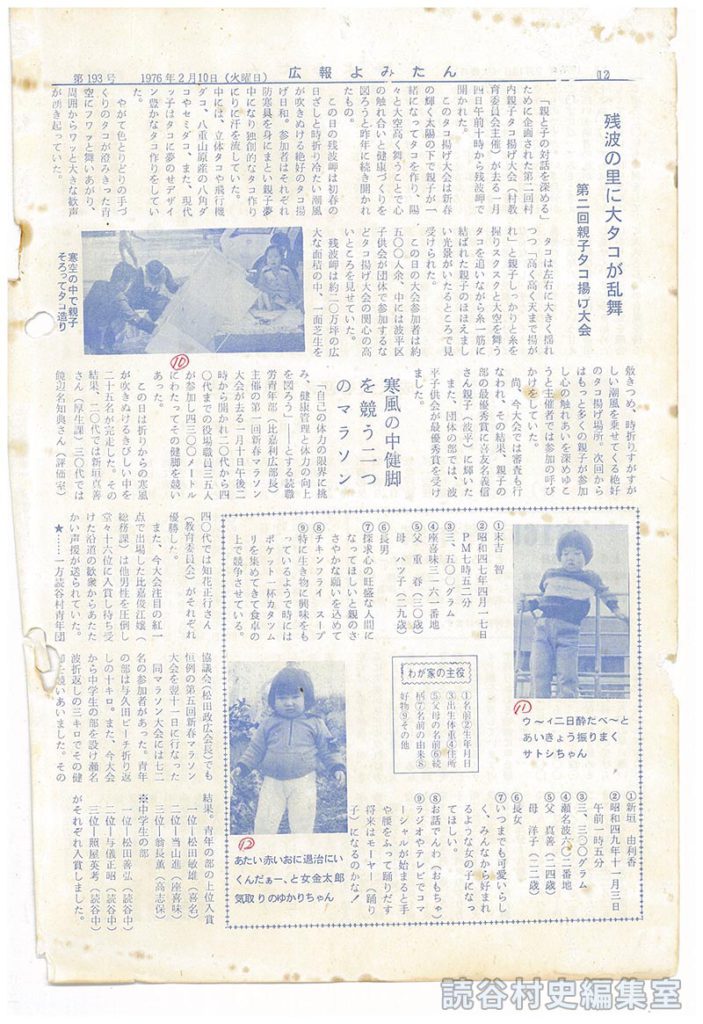 第193号
1976年2月10日（火曜日）
広報よみたん
12
残波の里に大タコが乱舞
第二回親子タコ揚げ大会
「親と子の対話を深める」
ために企画された第二回村
内親子タコ揚げ大会（村教
育委員会主催）が去る一月
四日午前十時から残波岬で
開かれた。
このタコ揚げ大会は新春
の輝く太陽の下で親子が一
緒になってタコを作り、陽
々と大空高く舞うことで心
の触れ合いと健康づくりを
図ろうと昨年に続き開かれ
たもの。
この日の残波岬は初春の
日ざしと時折り冷たい潮風
が吹きぬける絶好のタコ揚
げ日和。参加者はそれぞれ
防寒具を身にまとい親子夢
中になり独創的なタコ作り
にりに汗を流していた。
中には、立体タコや飛行機
ダコ、八重山原産の八角ダ
コやセミダコ、また、現代
ッ子はタコに夢のせデザイ
ン豊かなタコ作りをしてい
た。
やがて色とりどりの手づ
くりのタコが澄みきった青
空にフワッと舞いあがり、
周囲からワッと大きな歓声
が湧き起っていた。
タコは左右に大きく揺れ
つつ「高く高く天まで揚が
れ」と親子しっかりと糸を
握りスクスクと大空を舞う
タコを追いながら糸一筋に
結ばれた親子のほほえまし
い光景がいたるところで見
受けられた。
この日の大会参加者は約
五〇〇人余、中には波平区
子供会が団体で参加するな
どタコ揚げ大会の関心の高
いところを見せていた。
残波岬は約二〇万坪の広
大な面積の中、一面芝生を
寒空の中で親子
そろってタコ造り
⑩
敷きつめ、時折りすがすが
しい潮風を乗せてくる絶好
のタコ揚げ場所。次回から
はもっと多くの親子が参加
し心の触れあいを深めゆこ
うと主催者では参加の呼び
かけをしていた。
尚、今大会では審査も行
なわれ、その結果、親子の
部の最優秀賞に喜友名義信
さん親子（波平）に輝いた
また、団体の部では、波
平子供会が最優秀賞を受け
ました。
寒風の中健脚
を競う二つ
のマラソン
「自己の体力の限界に挑
み、健康管理と体力の向上
を図ろう」――とする読職
労青年部（比嘉利広部長）
主催の第一回新春マラソン
大会が去る一月十日午後二
時から開かれ二〇代から四
〇代までの役場職員三五人
が参加し四三〇〇メートル
にわたってその健脚を競い
あった。
この日は折りからの寒風
が吹きぬけるきびしい中を
二十五名が完走した。その
結果、二〇代では新垣真善
さん（厚生課）三〇代では
饒辺名知典さん（評価室）
四〇代では知花正行さん
（教育委員会）がそれぞれ
優勝した。
また、今大会注目の紅一
点で出場した比嘉俊江嬢（
総務課）は他男性を圧倒し
堂々十六位に入賞し待ち受
けた沿道の歓衆からあたた
かい声援が送られていた。
★……一方読谷村青年団
協議会（松田政広会長）でも
恒例の第五回新春マラソン
大会を翌十一日に行なった
同マラソン大会には七二
名の参加者があった。青年
の部は与久田ビーチ折り返
しの十キロ。また、今大会
から中学生の部を設け瀬名
波折返しの三キロでその健
脚を競いあいました。その
結果。青年の部の上位入賞
一位―松田敏雄（喜名）
二位―当山進（座喜味）
三位―翁長薫（高志保）
※中学生の部
一位―松田善弘（読谷中）
二位―与儀正昭（読谷中）
三位―照屋英考（読谷中）
がそれぞれ入賞しました。
⑪
ウ～ィ二日酔だべ～と
あいきょう振りまく
サトシちゃん
①末吉　智
②昭和四七年四月一七日
PM七時五二分
③三、五〇〇グラム
④座喜味三一六一番地
⑤父　重春（三〇歳）
母　ハツ子（二九歳）
⑥長男
⑦探求心の旺盛な人間に
なってほしいと親のさ
さやかな願いを込めて
⑧チキンフライ　スープ
⑨特に生き物に興味をも
っているようで時には
ポケット一杯カタツム
リを集めてきて食卓の
上で競争させている。
わが家の主役
①名前②生年月日
③出生体重④住所
⑤父母の名前⑥続
柄⑦名前の由来⑧
好物⑨その他
⑫
あたい赤いおに退治にい
くんだぁー、と女金太郎
気取りのゆかりちゃん
①新垣　由利香
②昭和四九年十一月三日
午前一時五分
③三、三〇〇グラム
④瀬名波六〇二番地
⑤父　真善（二四歳）
母　洋子（二二歳）
⑥長女
⑦いつまでも可愛いらし
く、みんなから好まれ
るような女の子になっ
てほしい。
⑧お話でんわ（おもちゃ）
⑨ラジオやテレビでコマ
ーシャルが始まると手
や腰をふって踊りだす
将来はモーヤー（踊り
子）になるのかな！
読谷村史編集室